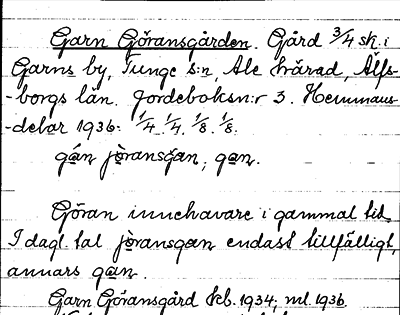 Garn Göransgården. Gård 3/4 sk. i
Garns by, Tunge s:n, Ale härad, Älfs-
-borgs län. Jordeboksn:r 3. Hemmans-
-delar 1936: 1/4. 1/4. 1/8. 1/8.
gán jòransgan, gan.
Göran innehavare i gammal tid.
I dagl. tal jòransgan endast tillfälligt,
annars gan.
Garn Göransgård kb. 1934; ml. 1936.